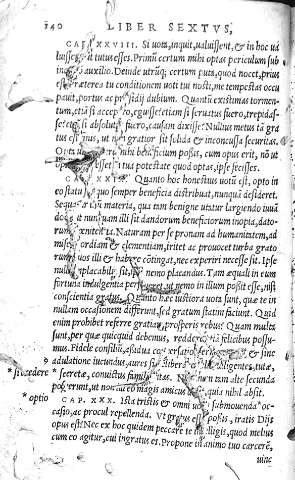 140 LIBER SEXTVS,
CAP. XXVIII. Si uota, inquit, ualuissent, & in hoc ua
luisses, tutus esses. Primū certum mihi optas periculum sub
auxilio. Deinde utrūq; certum puta, quod nocet, prius
tu conditionem uoti tui nosti, me tempestas occu
pauit, portus ac præsidij dubium. Quantū existimas tormen-
tum, etiā si accepero, eguisse? etiam si seruatus fuero, trepidas-
se? etiam si absolutus fuero, causam dixisse? Nullius metus tā gra
tus est finis, ut non gratior sit solida & inconcussa securitas.
reddere mihi beneficium possis, cum opus erit, nō ut
opus sit. si tua potestate quod optas, ipse fecisses.
CAP. XXIX. Quanto hoc honestius uotū est, opto in
eo statu quo semper beneficia distribuat, nunquā desideret.
Sequatur illū materia, qua tam benigne utatur largiendo
ut nunquam illi sit dandorum beneficiorum inopia, dato-
rum pœnitentia. Naturam per se pronam ad humanitatem, ad
misericordiam & clementiam, irritet ac prouocet turba grato
rum, quos illi & habere cōtingat, nec experiri necesse sit. Ipse
nulli implacabilis sit, nemo placandus. Tam æquali in eum
fortuna indulgentia perseueret ut nemo in illum possit esse, nisi
conscientia gratus. Quanto hæc iustiora uota sunt, quæ te in
nullam occasionem differunt, sed gratum statim faciunt. Quid
enim prohibet referre gratiam prosperis rebus? Quam multa
sunt, per quæ quicquid debemus, reddere etiā felicibus possu-
mus. Fidele consiliū, assidua conuersatio, & sine
adulatione iucundus, aures si deliberare diligentes, tutæ,
* si credere secretæ, conuictus familiaritas. Neminem tam alte secunda
posuerunt, ut non illi eo magis amicus desit, quia nihil absit.
* optio CAP. XXX. Ista tristis & omni uoto submouenda oc-
casio, ac procul repellenda. Vt gratus esse possis, iratis Dijs
opus est? Nec ex hoc quidem peccare te intelligis, quod melius
cum eo agitur, cui ingratus es. Propone in animo tuo carcerē,
uinc